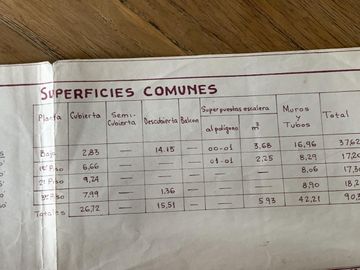 SUPERFICIES COMUNES
Planta Cubierta Semi-Cubierta Descubierta Balcon Superpuestas escalera al polígono m² Muros y Tubos Total
Baja 2,83 — 14.15 — 00-01 3,68 16,96 37,62
1er Piso 6,66 — — — 01-01 2,25 8,29 17,20
2º Piso 9,24 — — — — 8,06
3er Piso 7,99 — 1,36 — — 8,90
Totales 26,72 — 15,51 — 5.93 42,21